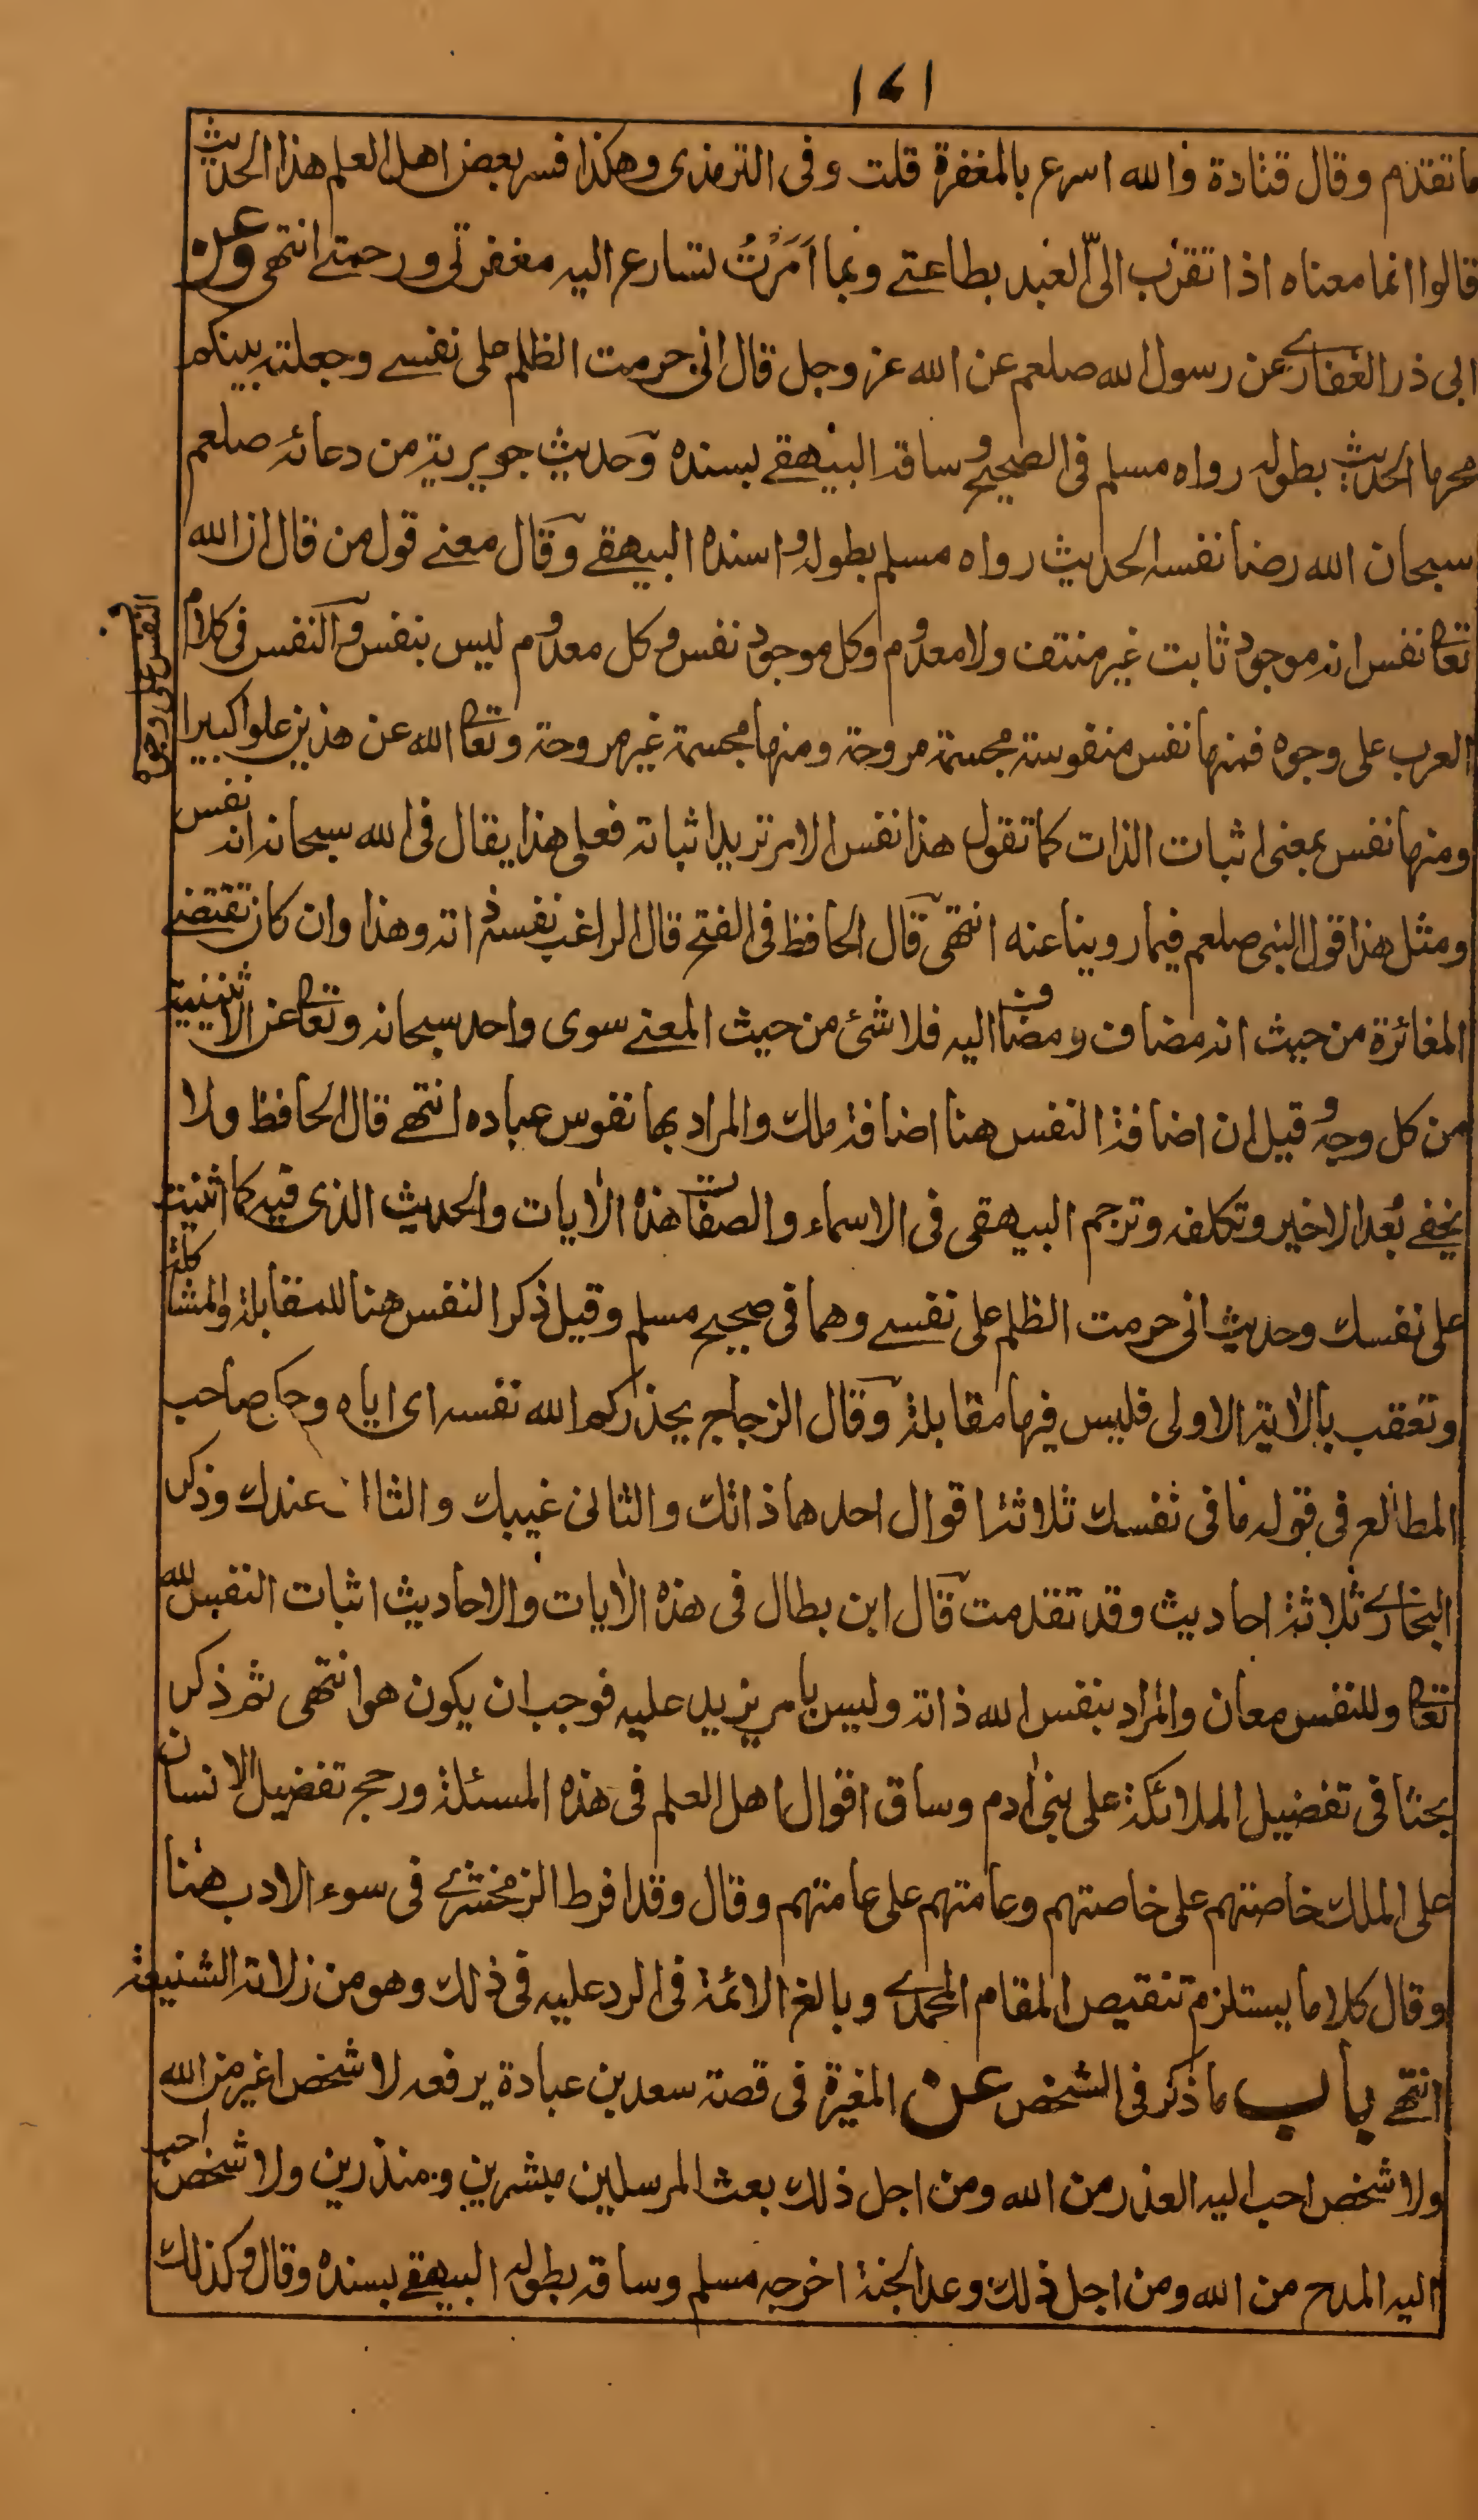 ١٤١
ما تقدم وقال قتادة فالله اسرع بالمغفرة قلت وفى الترمذى وهكذا فسر بعض اهل العلم هذا الحديث
قالوا انما معناه اذا تقرب الىّ العبد بطاعتے وبما اَمَرْتُ تسارع اليه مغفرتى ورحمتے انتهى وعن
ابى ذر الغفارے عن رسول الله صلعم عن الله عز وجل قال انى حرمت الظلم على نفسے وجعلته بينكم
محرما الحديث بطوله رواه مسلم فى الصحيح وساقه البيهقے بسنده وحديث جويرية من دعائه صلعم
سبحان الله رضا نفسه الحديث رواه مسلم بطوله واسنده البيهقے وقال معنے قول من قال ان الله
تعا نفس انه موجود ثابت غير منتف ولا معدوم وكل موجود نفس وكل معدوم ليس بنفس والنفس فى كلام
العرب على وجوه فمنها نفس منفوسة مجسمة مروحة ومنها مجسمة غير مروحة وتعا الله عن هذين علوا كبيرا
النفس على وجوه
ومنها نفس بمعنى اثبات الذات كما تقول هذا نفس الامر تريد اثباته فعلى هذا يقال فى الله سبحانه انه نفس
ومثل هذا قول النبى صلعم فيما روينا عنه انتهى قال الحافظ فى الفتح قال الراغب نفسه ذاته وهذا وان كان تقتضے
المغائرة من حيث انه مضاف ومضاف اليه فلا شئ من حيث المعنے سوى واحد سبحانه وتعا عن الاثنينية
من كل وجه وقيل ان اضافة النفس هنا اضافة ملك والمراد بها نفوس عباده انتهے قال الحافظ ولا
يخفے بُعد الاخير وتكلفه وترجم البيهقى فى الاسماء والصفات هذه الآيات والحديث الذى فيه كما اثنيت
على نفسك وحديث انى حرمت الظلم على نفسے وهما فى صحيح مسلم وقيل ذكر النفس هنا للمقابلة والمشاكلة
وتعقب بالآية الاولى فليس فيها مقابلة وقال الزجاج يحذركم الله نفسه اى اياه وحكى صاحب
المطالع فى قوله ما فى نفسك ثلاثة اقوال احدهما ذاتك والثانى غيبك والثا عندك وذكر
البخارے ثلاثة احاديث وقد تقدمت قال ابن بطال فى هذه الآيات والاحاديث اثبات النفس لله
تعا وللنفس معان والمراد بنفس الله ذاته وليس بامر يزيد عليه فوجب ان يكون هو انتهى ثم ذكر
بحثا فى تفضيل الملائكة على بنى آدم وساق اقوال اهل العلم فى هذه المسئلة ورجح تفضيل الانسان
على الملك خاصتهم على خاصتهم وعامتهم على عامتهم وقال وقد افرط الزمخشرے فى سوء الادب هنا
وقال كلاما يستلزم تنقيص المقام المحمدے وبالغ الائمة فى الرد عليه فى ذلك وهو من زلاته الشنيعة
انتهے باب ما ذكر فى الشخص عن المغيرة فى قصة سعد بن عبادة يرفعه لا شخص اغير من الله
ولا شخص احب اليه العذر من الله ومن اجل ذلك بعث المرسلين مبشرين ومنذرين ولا شخص احب
اليه المدح من الله ومن اجل ذلك وعد الجنة اخرجه مسلم وساقه بطوله البيهقے بسنده وقال وكذلك